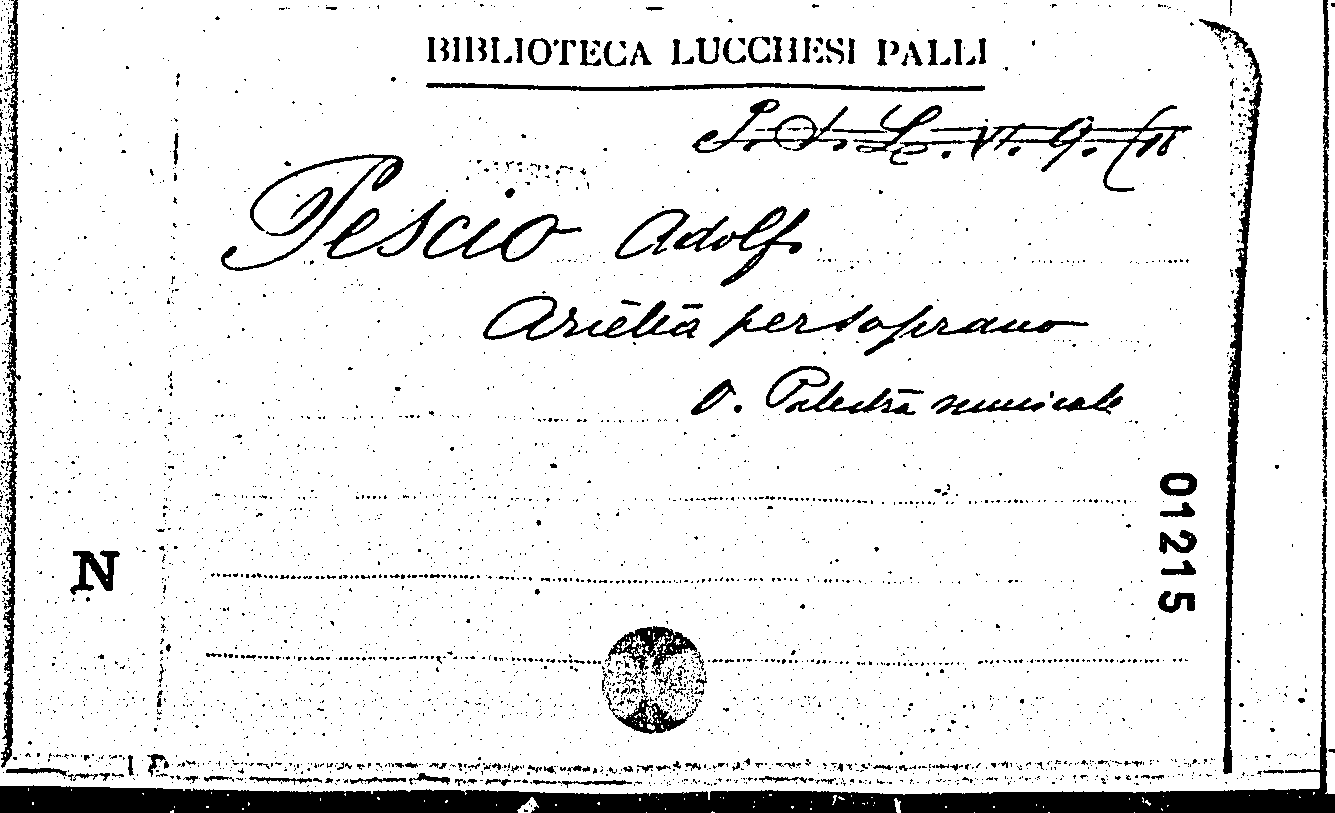 BIBLIOTECA LUCCHESI PALLI
Pescio Adolfo
Arietta per soprano
V. Palestra musicale
01215
N